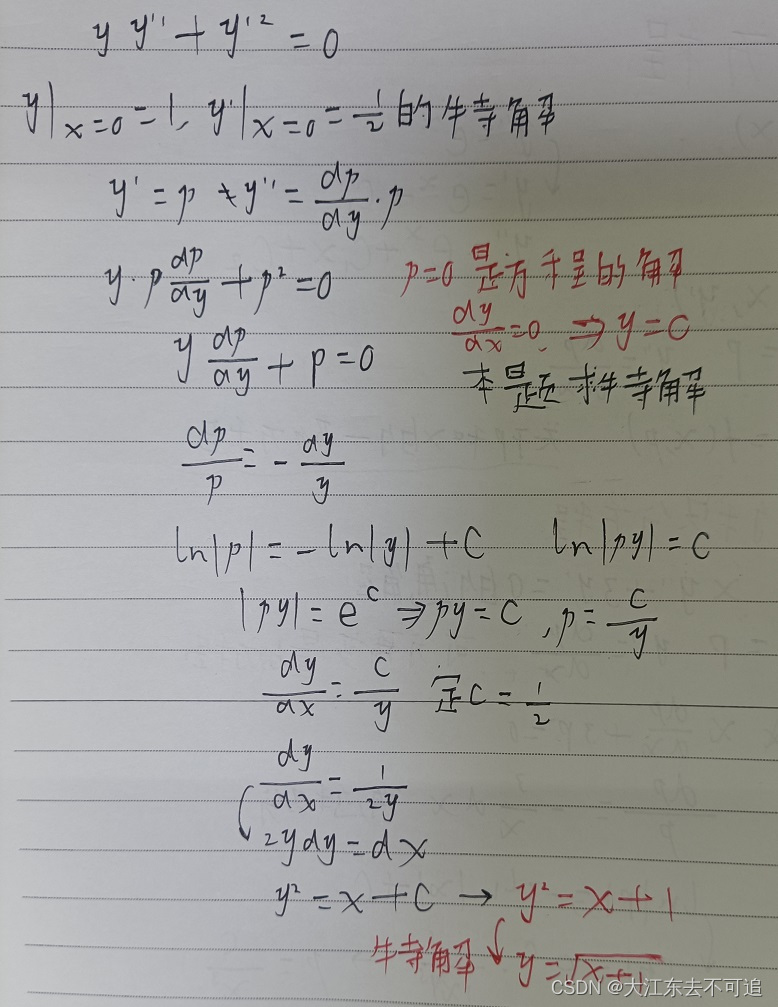 y y'' + y'² = 0
y|ₓ₌₀ = 1, y'|ₓ₌₀ = 1/2 的特解
y' = p y'' = dp/dy · p
y · p dp/dy + p² = 0 p=0 是方程的解
dy/dx = 0, ⇒ y = C
y dp/dy + p = 0
本题求特解
dp/p = - dy/y
ln|p| = -ln|y| + C ln|py| = C
|py| = e^C ⇒ py = C, p = C/y
dy/dx = C/y 定C = 1/2
dy/dx = 1/2y
2ydy = dx
y² = x + C → y² = x + 1
特解 y = √(x+1)
CSDN @大江东去不可追